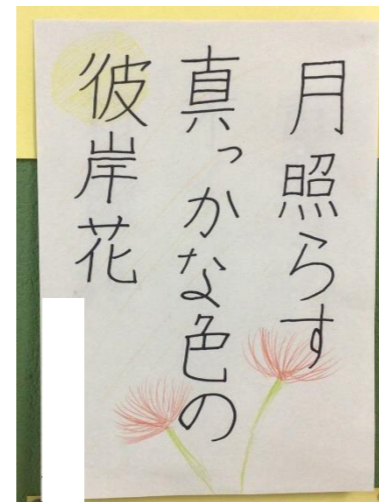 月照らす
真っかな色の
彼岸花